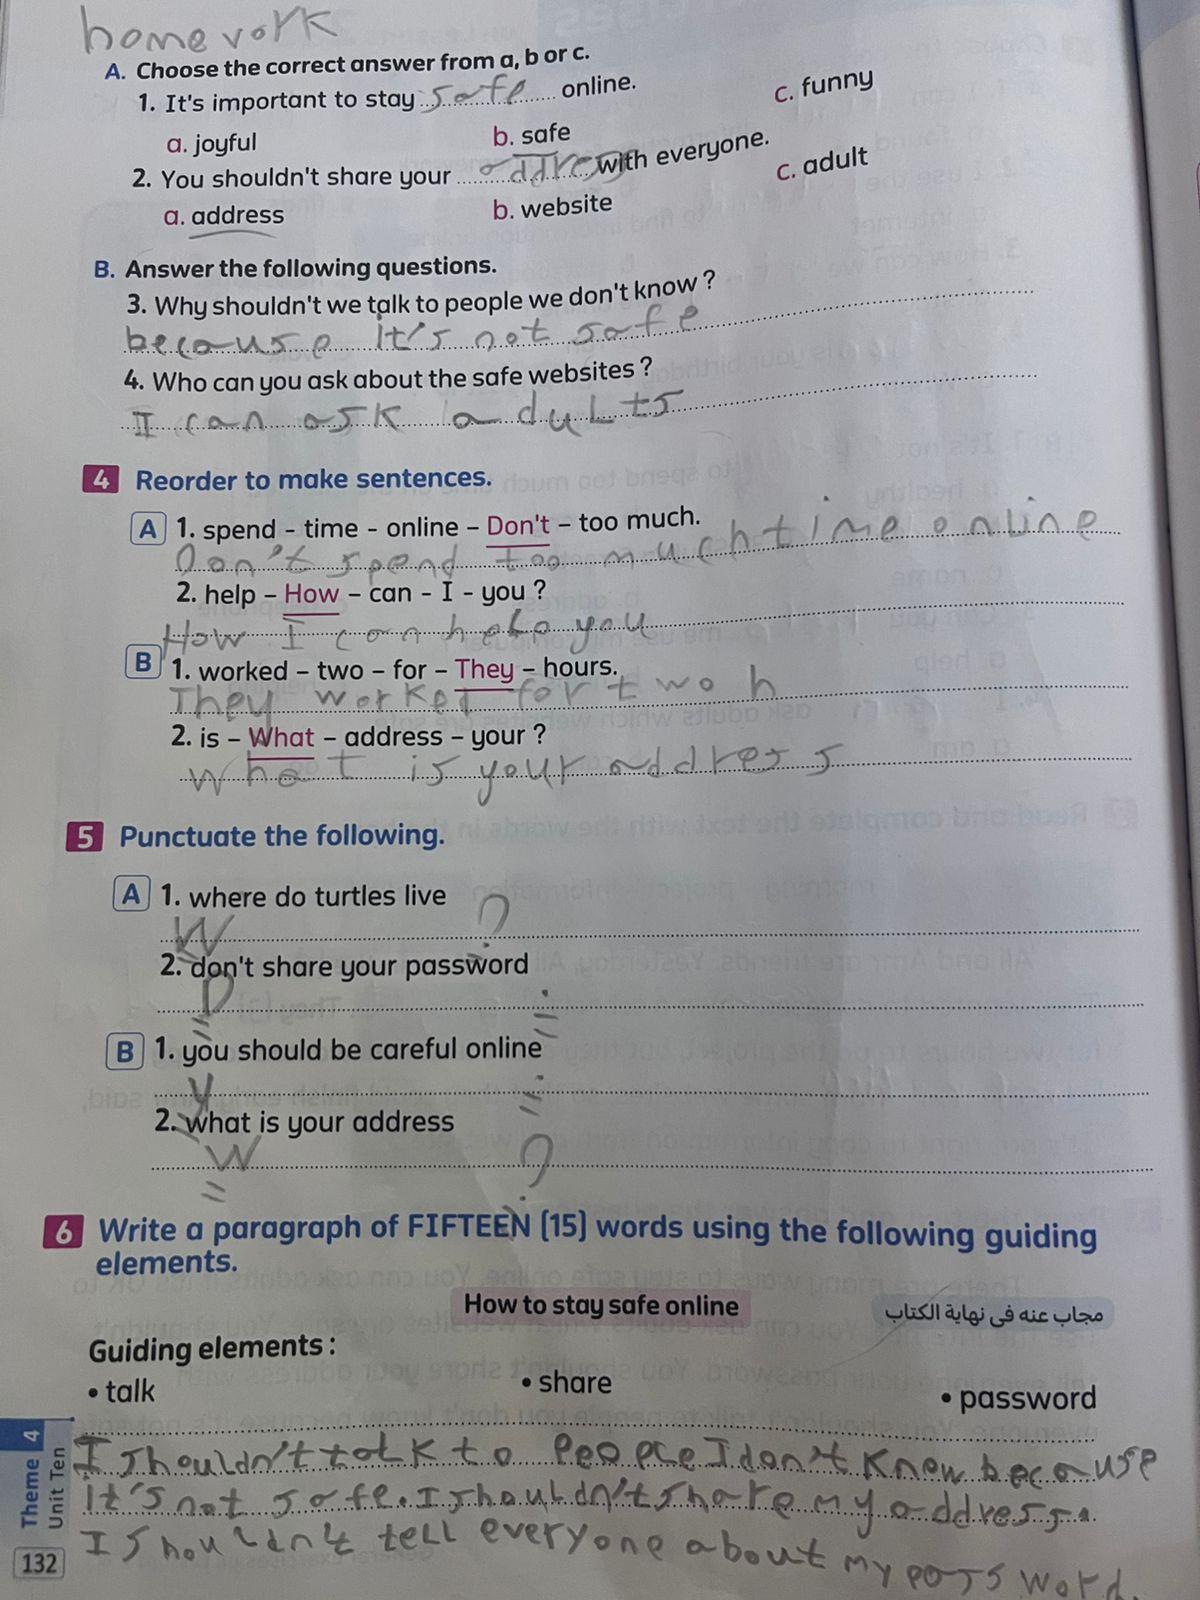 home vork
A. Choose the correct answer from a, b or c.
1. It's important to stay safe online.
a. joyful b. safe c. funny
2. You shouldn't share your address with everyone.
a. address b. website c. adult
B. Answer the following questions.
3. Why shouldn't we talk to people we don't know ?
because it's not safe
4. Who can you ask about the safe websites ?
I can ask adults
4 Reorder to make sentences.
A 1. spend - time - online – Don't – too much.
Don't spend too much time online
2. help – How – can - I - you ?
How I can help you
B 1. worked – two – for – They – hours.
They worked for two h
2. is – What – address – your ?
what is your address
5 Punctuate the following.
A 1. where do turtles live
W ?
2. don't share your password
D .
B 1. you should be careful online
y .
2. what is your address
W ?
6 Write a paragraph of FIFTEEN (15) words using the following guiding
elements.
How to stay safe online مجاب عنه فى نهاية الكتاب
Guiding elements :
• talk • share • password
I shouldn't talk to people I don't know because
it's not safe. I shouldn't share my address.
I shouldn't tell everyone about my password.
Theme 4
Unit Ten
132